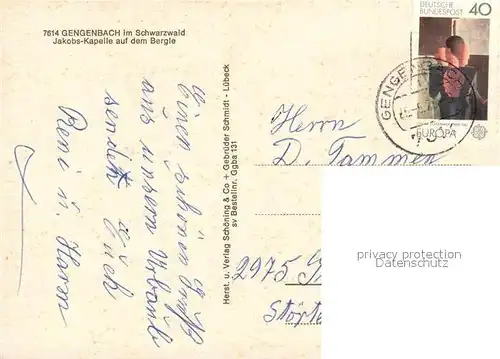 7614 GENGENBACH im Schwarzwald
Jakobs-Kapelle auf dem Bergle
Einen schönen Gruß
aus unserm Urlaub
sendet Euch
Reni u. Harm
Herst. u. Verlag Schöning & Co + Gebrüder Schmidt - Lübeck
sv Bestellnr. Ggba 131
DEUTSCHE
BUNDESPOST
40
EUROPA
GENGENBACH
Herrn
D. Tammen
2975
privacy protection
oldthing.de